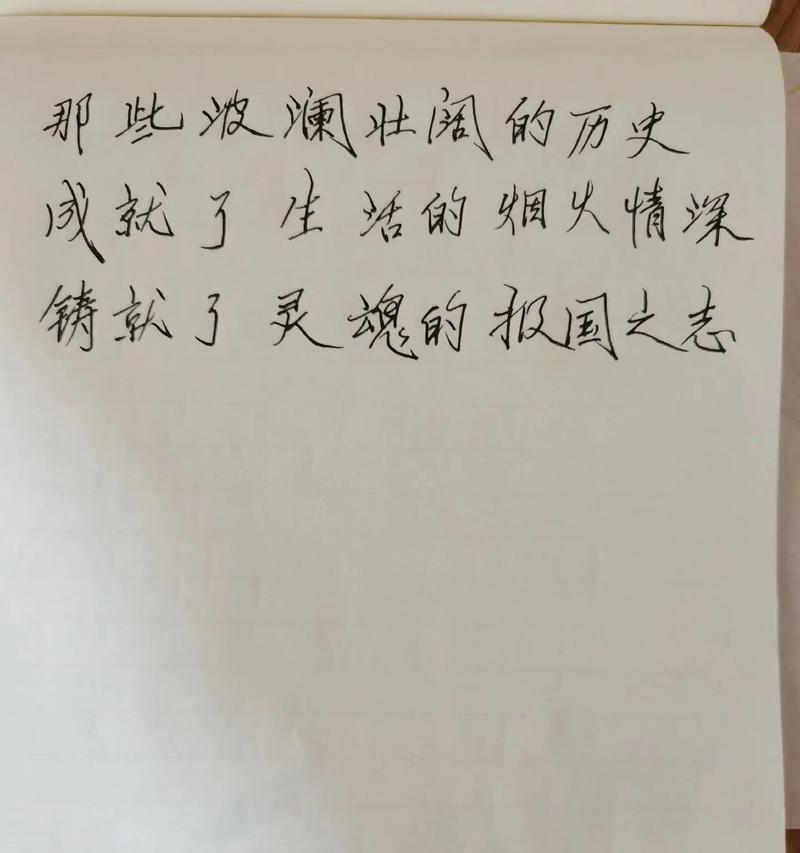 那些波澜壮阔的历史
成就了生活的烟火情深
铸就了灵魂的报国之志